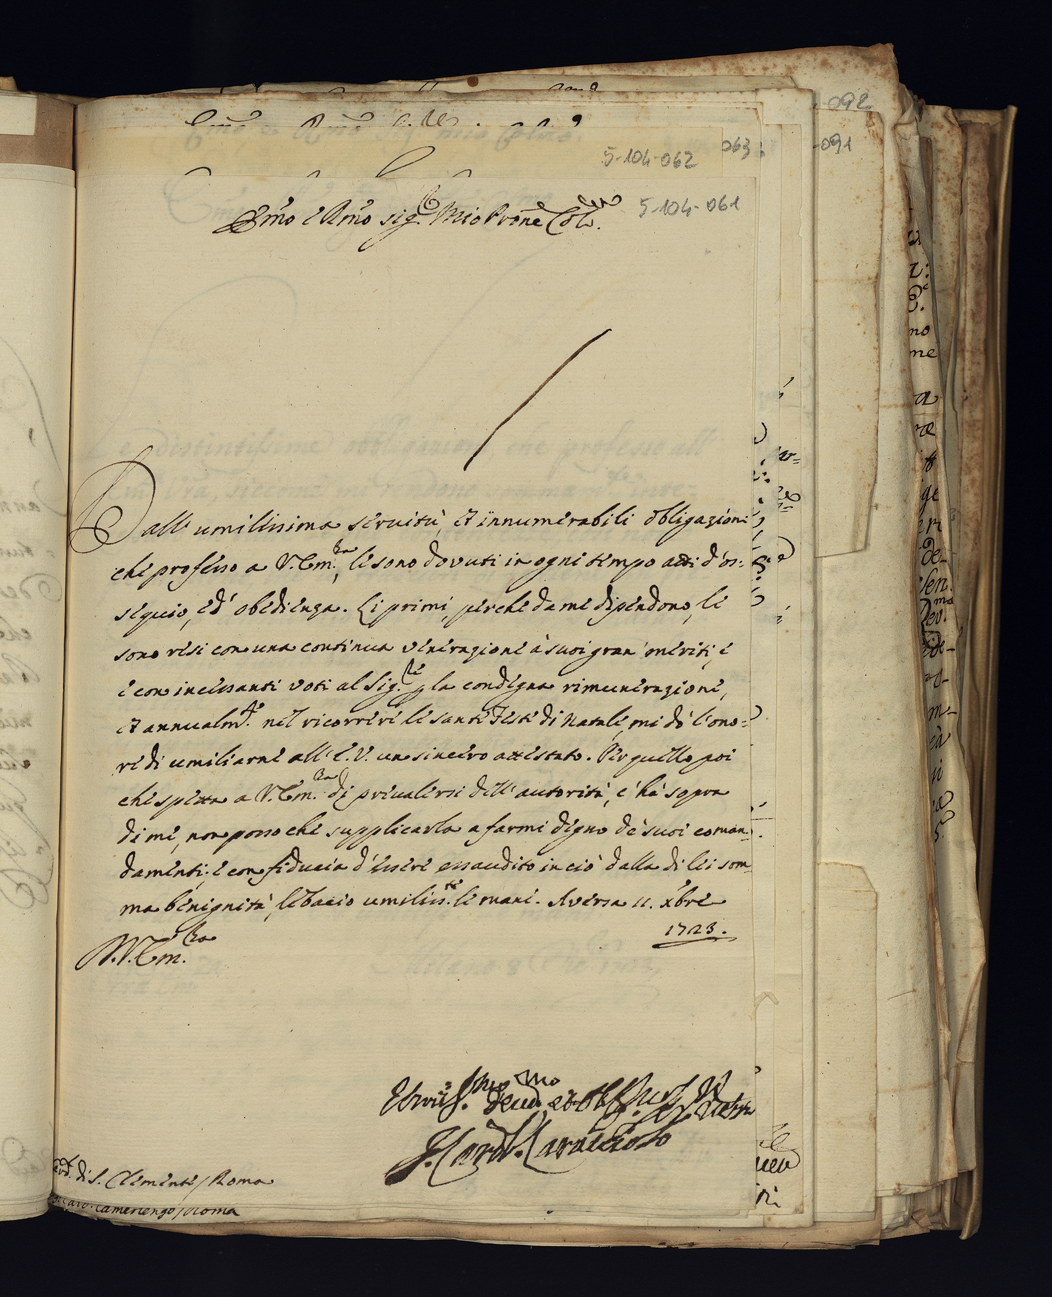 -092
5-104-062
063
-091
5-104-061
Emo e Rmo Sig.r Mio Prone Col.mo
Dall' umilissima servitù, et innumerabili obligazioni
che professo a V. Em.za, le sono dovuti in ogni tempo atti d'os:
sequio, ed' obedienza. Li primi, perche da me dipendono, le
sono resi con una continua venerazione à suoi gran meriti, e
e con incessanti voti al Sig.re p la condegna rimunerazione,
et annualm.te nel ricorrere le sante Feste di Natale, mi dò l'ono:
re di umiliarne all' E. V. un sincero attestato. Per quello poi
che spetta a V. Em.za di prevalersi dell' autorità, e hà sopra
di me, non posso che supplicarla a farmi degno de suoi coman:
damenti; e con fiducia d'essere essaudito in ciò dalla di lei som:
ma benignità, le bacio umiliss.te le mani. Aversa 11. Xbre
1723.
D. V. Em.za
Umiliss.mo Dev.mo
J. Card. Caracciolo
Card. di S. Clemente / Roma
Card. Camerlengo / Roma